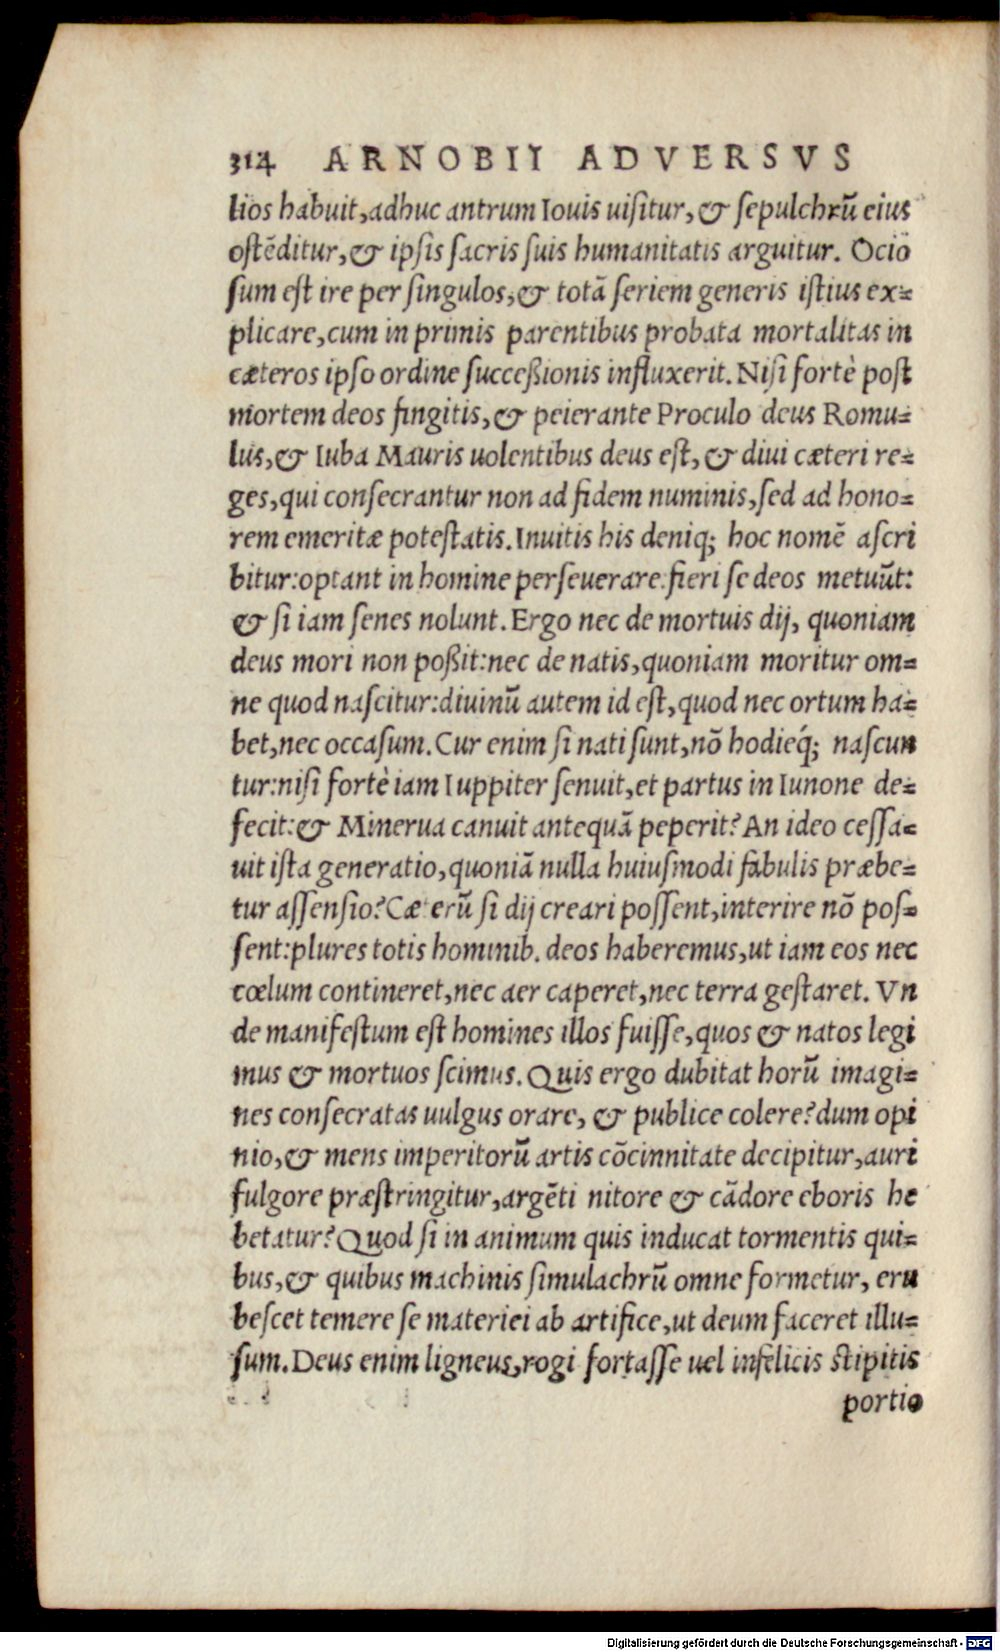 314 ARNOBII ADVERSVS
lios habuit,adhuc antrum Iouis uisitur,& sepulchrũ eius
ostẽditur,& ipsis sacris suis humanitatis arguitur. Ocio
sum est ire per singulos,& totã seriem generis istius ex-
plicare,cum in primis parentibus probata mortalitas in
cæteros ipso ordine succeßionis influxerit. Nisi fortè post
mortem deos fingitis,& peierante Proculo deus Romu-
lus,& Iuba Mauris uolentibus deus est,& diui cæteri re-
ges,qui consecrantur non ad fidem numinis,sed ad hono-
rem emeritæ potestatis.Inuitis his deniq; hoc nomẽ ascri
bitur:optant in homine perseuerare:fieri se deos metuũt:
& si iam senes nolunt. Ergo nec de mortuis dij, quoniam
deus mori non poßit:nec de natis,quoniam moritur om-
ne quod nascitur:diuinũ autem id est,quod nec ortum ha-
bet,nec occasum.Cur enim si nati sunt,nõ hodieq́; nascun
tur:nisi fortè iam Iuppiter senuit,et partus in Iunone de-
fecit:& Minerua canuit antequã peperit? An ideo cessa-
uit ista generatio,quoniã nulla huiusmodi fabulis præbe-
tur assensio?Cæterũ si dij creari possent,interire nõ pos-
sent:plures totis hominib. deos haberemus,ut iam eos nec
cœlum contineret,nec aer caperet,nec terra gestaret. Vn
de manifestum est homines illos fuisse,quos & natos legi
mus & mortuos scimus. Quis ergo dubitat horũ imagi-
nes consecratas uulgus orare, & publice colere?dum opi
nio,& mens imperitorũ artis cõcinnitate decipitur,auri
fulgore præstringitur,argẽti nitore & cãdore eboris he
betatur?Quod si in animum quis inducat tormentis qui-
bus,& quibus machinis simulachrũ omne formetur, eru
bescet temere se materiei ab artifice,ut deum faceret illu-
sum.Deus enim ligneus,rogi fortasse uel infelicis stipitis
portio
Digitalisierung gefördert durch die Deutsche Forschungsgemeinschaft - DFG